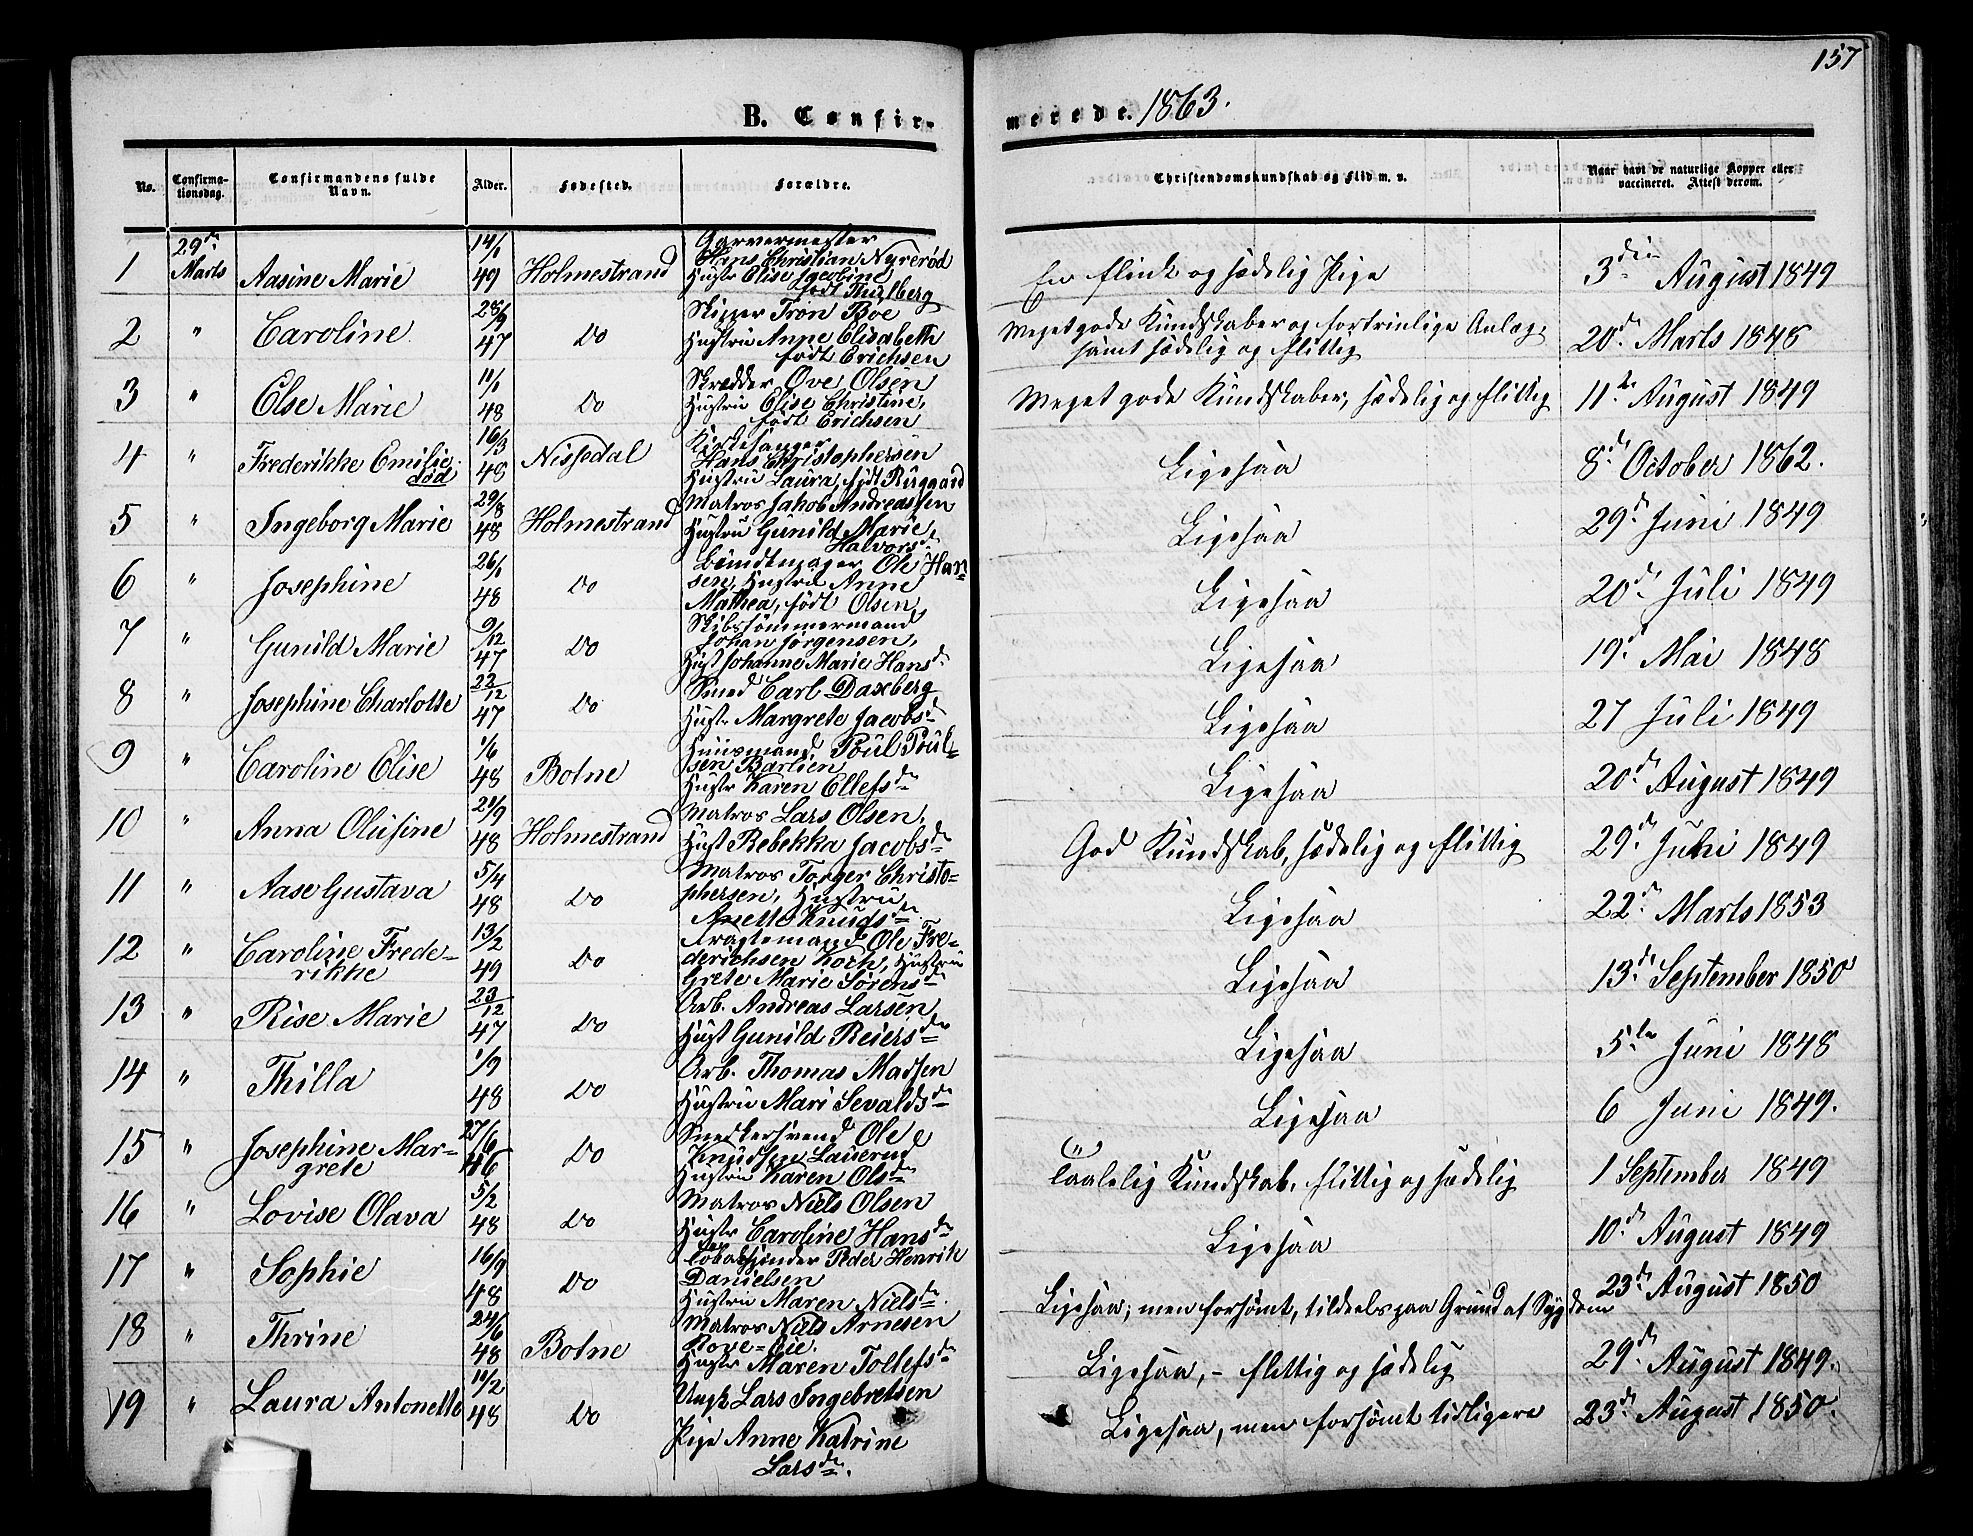 157
B. Confirmerede. 1863.
No. Confirmationsdag. Confirmandens fulde Navn. Alder. Fødested. Forældre. Christendomskundskab og Flid m. v. Naar havt de naturlige Kopper eller vaccineret. Attest derom.
1 29de Marts Aasine Marie 14/1 49 Holmestrand Garvermester
Hans Christian Nyrerød
Hustr Elise Jacobine
født Thulberg
En flink og sædelig Pige 3die August 1849
2 " Caroline 28/9 47 Do Skipper Tron Boe
Hustru Anne Elisabeth
født Erichsen
Meget gode Kundskaber og fortrinlige Anlæg,
samt sædelig og flittig 20de Marts 1848
3 " Else Marie 11/1 48 Do Skrædder Ove Olsen
Hustru Elise Christine,
født Erichsen
Meget gode Kundskaber, sædelig og flittig 11te August 1849
4 " Frederikke Emilie død 16/3 48 Nissedal Kirkesanger
Hans Christophersen
Hustru Laura, født Ruggaard
Ligesaa 8de October 1862.
5 " Ingeborg Marie 29/8 48 Holmestrand Matros Jakob Andreassen
Hustru Gunild Marie
Halvorsde
Ligesaa 29de Juni 1849
6 " Josephine 26/1 48 Do Bundtmager Ole Hansen, Hustru Anne
Mathea, født Olsen
Ligesaa 20de Juli 1849
7 " Gunild Marie 9/12 47 Do Skibstømmermand
Johan Jørgensen,
Hust Johanne Marie Hansde
Ligesaa 19de Mai 1848
8 " Josephine Charlotte 22/12 47 Do Smed Carl Daxberg
Hustr Margrete Jacobsde
Ligesaa 27 Juli 1849
9 " Caroline Elise 1/6 48 Botne Huusmand Poul Poulsen Barlien
Hustr Karen Ellefsde
Ligesaa 20de August 1849
10 " Anna Olufine 21/9 48 Holmestrand Matros Lars Olsen,
Hust Rebekka Jacobsde
God Kundskab, sædelig og flittig 29de Juni 1849
11 " Aase Gustava 5/4 48 Do Matros Torger Christophersen, Hustru
Anette Knudsde
Ligesaa 22de Marts 1853
12 " Caroline Frederikke 13/2 49 Do Fragtemand Ole Frederichsen Koch, Hustru
Grete Marie Sørensde
Ligesaa 13de September 1850
13 " Rise Marie 23/12 47 Do Arb. Andreas Larsen
Hust Gunild Reiersde
Ligesaa 5te Juni 1848
14 " Thilla 1/9 48 Do Arb. Thomas Madsen
Hustru Mari Sevaldsde
Ligesaa 6 Juni 1849.
15 " Josephine Margrete 27/6 46 Do Snedkersvend Ole
Knudsen Lauerud
Hustru Karen Olsde
Taalelig Kundskab, flittig og sædelig 1 September 1849
16 " Lovise Olava 5/2 48 Do Matros Niels Olsen
Hustr Caroline Hansde
Ligesaa 10de August 1849
17 " Sophie 16/9 48 Do Tobakspinder Peder Henrik
Danielsen
Hustru Maren Nielsde
Ligesaa; men forsømt, tildeels paa Grund af Sygdom 23de August 1850
18 " Thrine 24/6 48 Botne Matros Niels Arnesen
Rove-Eie.
Hustr Maren Tollefsde
Ligesaa, - flittig og sædelig 29de August 1849.
19 " Laura Antonette 11/2 48 Do Ungk Lars Ingebretsen
Pige Anne Katrine
Larsde.
Ligesaa, men forsømt tidligere 23de August 1850.